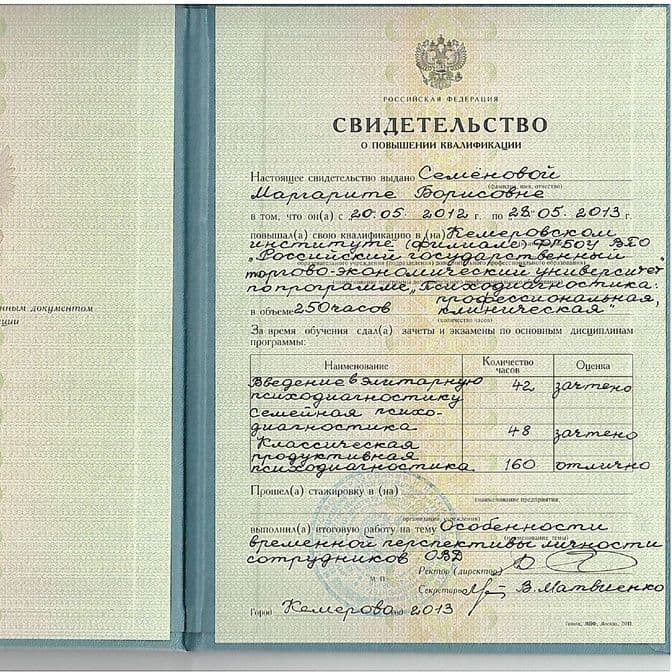 РОССИЙСКАЯ ФЕДЕРАЦИЯ
СВИДЕТЕЛЬСТВО
О ПОВЫШЕНИИ КВАЛИФИКАЦИИ
Настоящее свидетельство выдано Семёновой
(фамилия, имя, отчество)
Маргарите Борисовне
в том, что он(а) с 20.05 2012 г. по 28.05. 2013 г.
повышал(а) свою квалификацию в (на) Кемеровском
институте (филиале) ФГБОУ ВПО
„Российский государственный
торгово-экономический университет"
по программе „Психодиагностика:
профессиональная,
в объеме 250 часов клиническая"
(количество часов)
За время обучения сдал(а) зачеты и экзамены по основным дисциплинам
программы:
Наименование Количество часов Оценка
Введение в элитарную 42 зачтено
психодиагностику
Семейная психо-
диагностика 48 зачтено
Классическая
продуктивная
психодиагностика 160 отлично
Прошел(а) стажировку в (на)
наименование предприятия,
организации, учреждения)
выполнил(а) итоговую работу на тему Особенности
(наименование темы)
временной перспективы личности
сотрудников ОВД
Ректор (директор)
М П
Секретарь В. Матвиенко
Город Кемерово год 2013
нным документом
ции